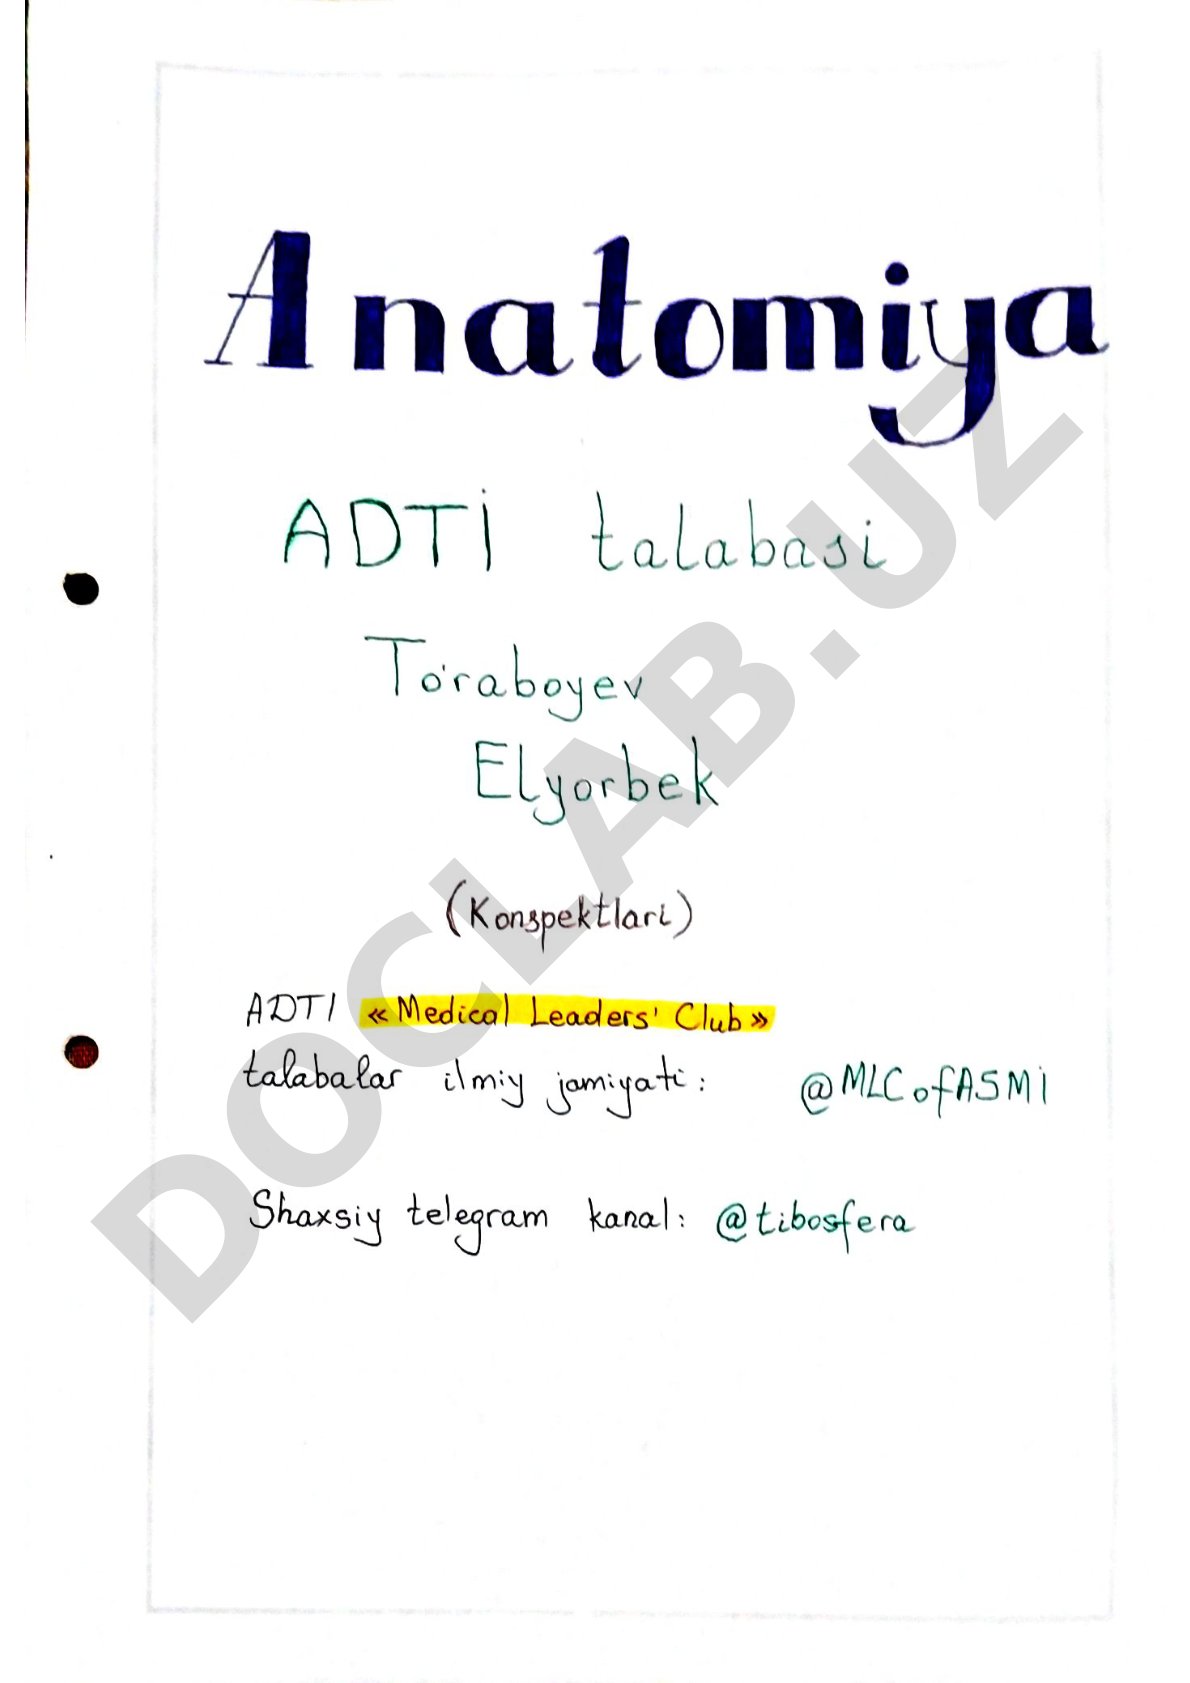 Anatomiya
ADTİ talabasi
To'raboyev
Elyorbek
(Konspektlari)
ADTI «Medical Leaders' Club»
talabalar ilmiy jamiyati: @MLCofASMI
Shaxsiy telegram kanal: @tibosfera
DOCLAB.UZ